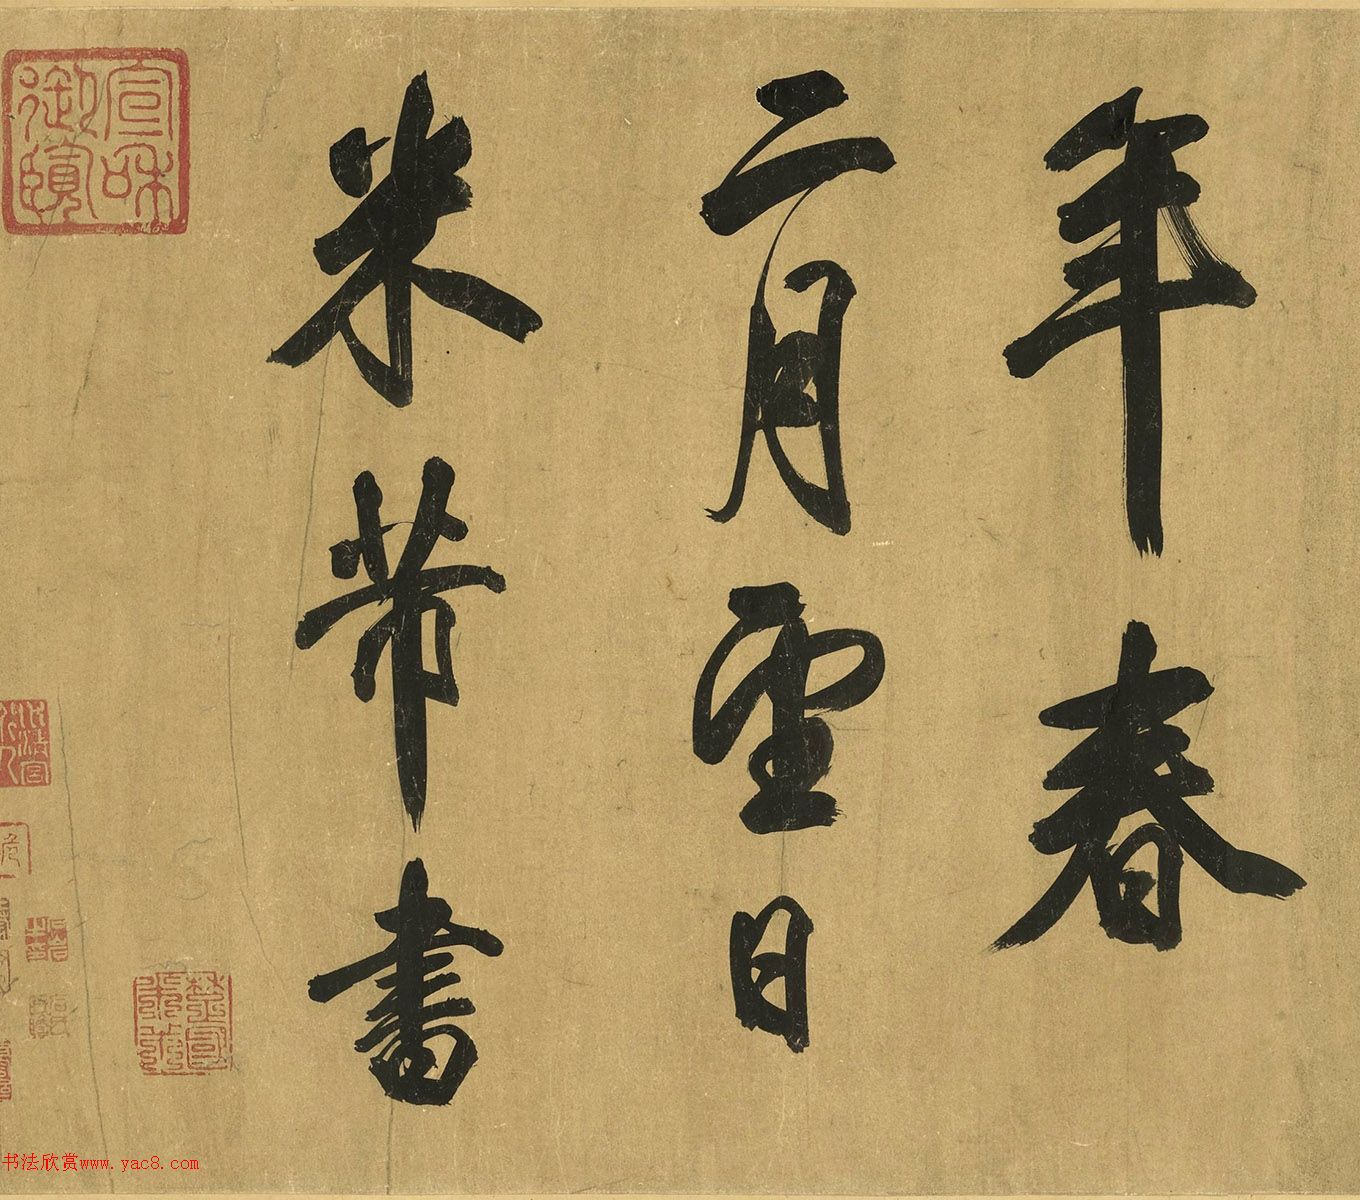 年春
二月望日
米芾書
宣和御
书法欣赏www.yac8.com